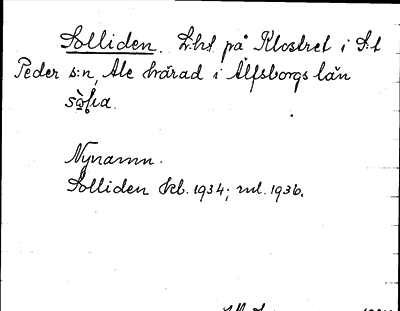 Solliden. Lht på Klostret i S:t
Peder s:n, Ale härad i Älfsborgs län
Nynamn.
Solliden kb. 1934; ml. 1936.